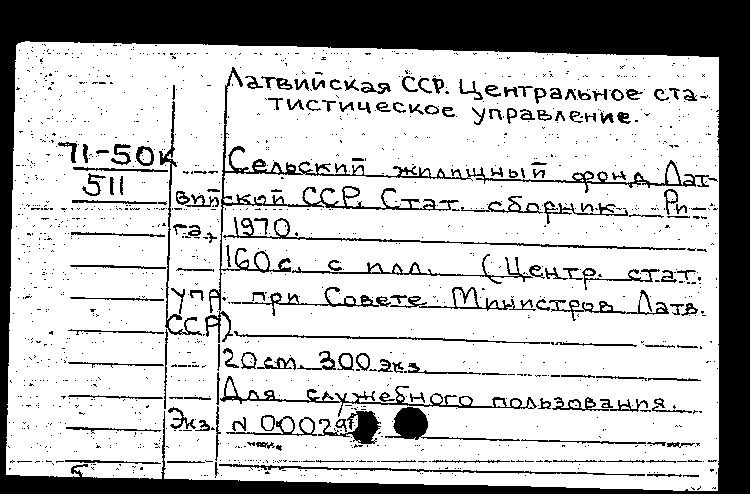 Латвийская ССР. Центральное ста-
тистическое управление.
71-50К
511
Сельский жилищный фонд Лат-
вийской ССР. Стат. сборник. Ри-
га, 1970.
160 с. с илл. (Центр. стат.
упр. при Совете Министров Латв.
ССР).
20 см. 300 экз.
Для служебного пользования.
Экз. N 00029